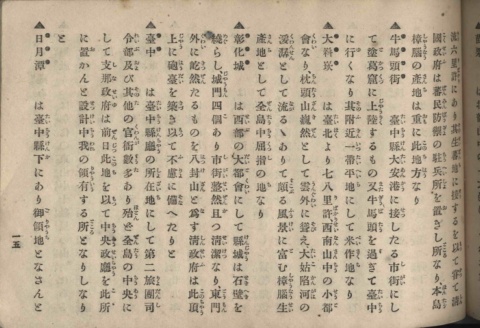 流六里許にあり其生蕃地に接するを以て嘗て清
國政府は蕃民防禦の駐兵所を置きし所なり本島
樟腦の產地は重に此地方なり
▲牛馬頭街　臺中縣大安港に接したる市街にし
て塗葛窟に上陸するもの又牛馬頭を過ぎて臺中
に行くなり其附近一帶平地にして米作地なり
▲大料崁　は臺北より七八里許西南山中の小都
會なり枕頭山巍然として雲外に聳え大姑陷河の
潺湲として流るゝありて頗る風景に富む樟腦生
產地として全島中屈指の地なり
▲彰化城　は西部の大都會にして縣城は石壁を
繞らし城門四個あり市街整然且つ清潔なり東門
外に屹然たるものを八封山と爲す清政府は此頂
上に砲臺を築き以て不慮に備へたりと
▲臺中　は臺中縣廳の所在地にして第二旅團司
令部及び其他の官衙數多あり殆ど全島の中央に
して支那政府は前日此地を以て中央政廳を此所
に置かんと設計中我の領有する所となりしなり
と
▲日月潭　は臺中縣下にあり御領地となさんと
一五